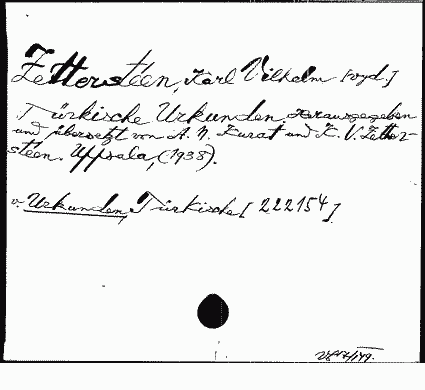 Zettersteen, Karl Vilhelm [oyd.]
Türkische Urkunden. Herausgegeben
und übersetzt von A. N. Kurat und K. V. Zetter-
stéen. Uppsala, (1938).
v. Urkunden, Türkische [222154].